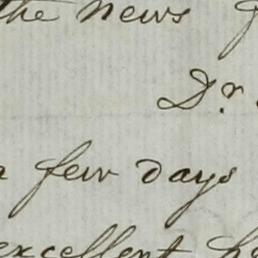 the news
Dr.
few days
excellent